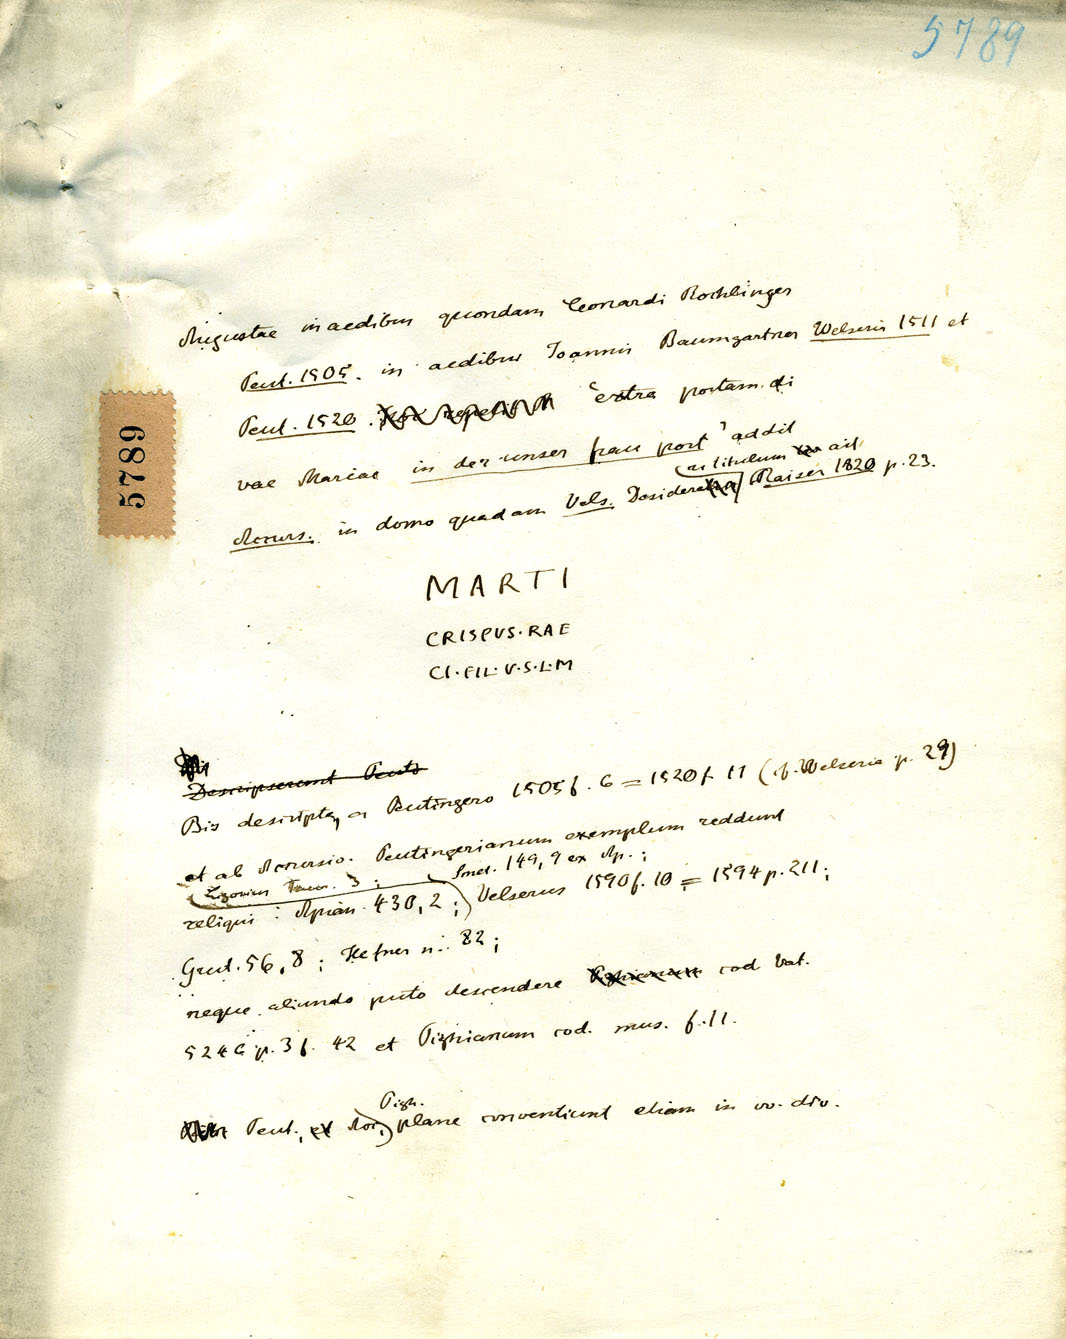 5789
Augustae in aedibus quondam Leonardi Rechlinger
Peut. 1505. in aedibus Ioannis Baumgartner Welseris 1511 et
Peut. 1520. extra portam di
vae Mariae in der unser frau port' addit
titulum ait
Accurs. in domo quadam Vels. Desiderari Raiser 1820 p. 23.
5789
MARTI
CRISPVS·RAE
CI·FIL·V·S·L·M
Descripserunt Peut
Bis descripta, a Peutingero 1505 f. 6 = 1520 f. 11 (cf. Welseria p. 29)
et ab Accursio. Peutingerianum exemplum reddunt
3; Smet. 149, 9 ex Ap.;
reliqui: Apian. 430, 2; Velserus 1590 f. 10 = 1594 p. 211;
Grut. 56, 8; Hefner n. 82;
neque aliunde puto descendere cod Vat.
5246 p. 3 f. 42 et Pighianum cod. mus. f. 11.
Pigh.
Peut., Acc., plane conveniunt etiam in vv. div.